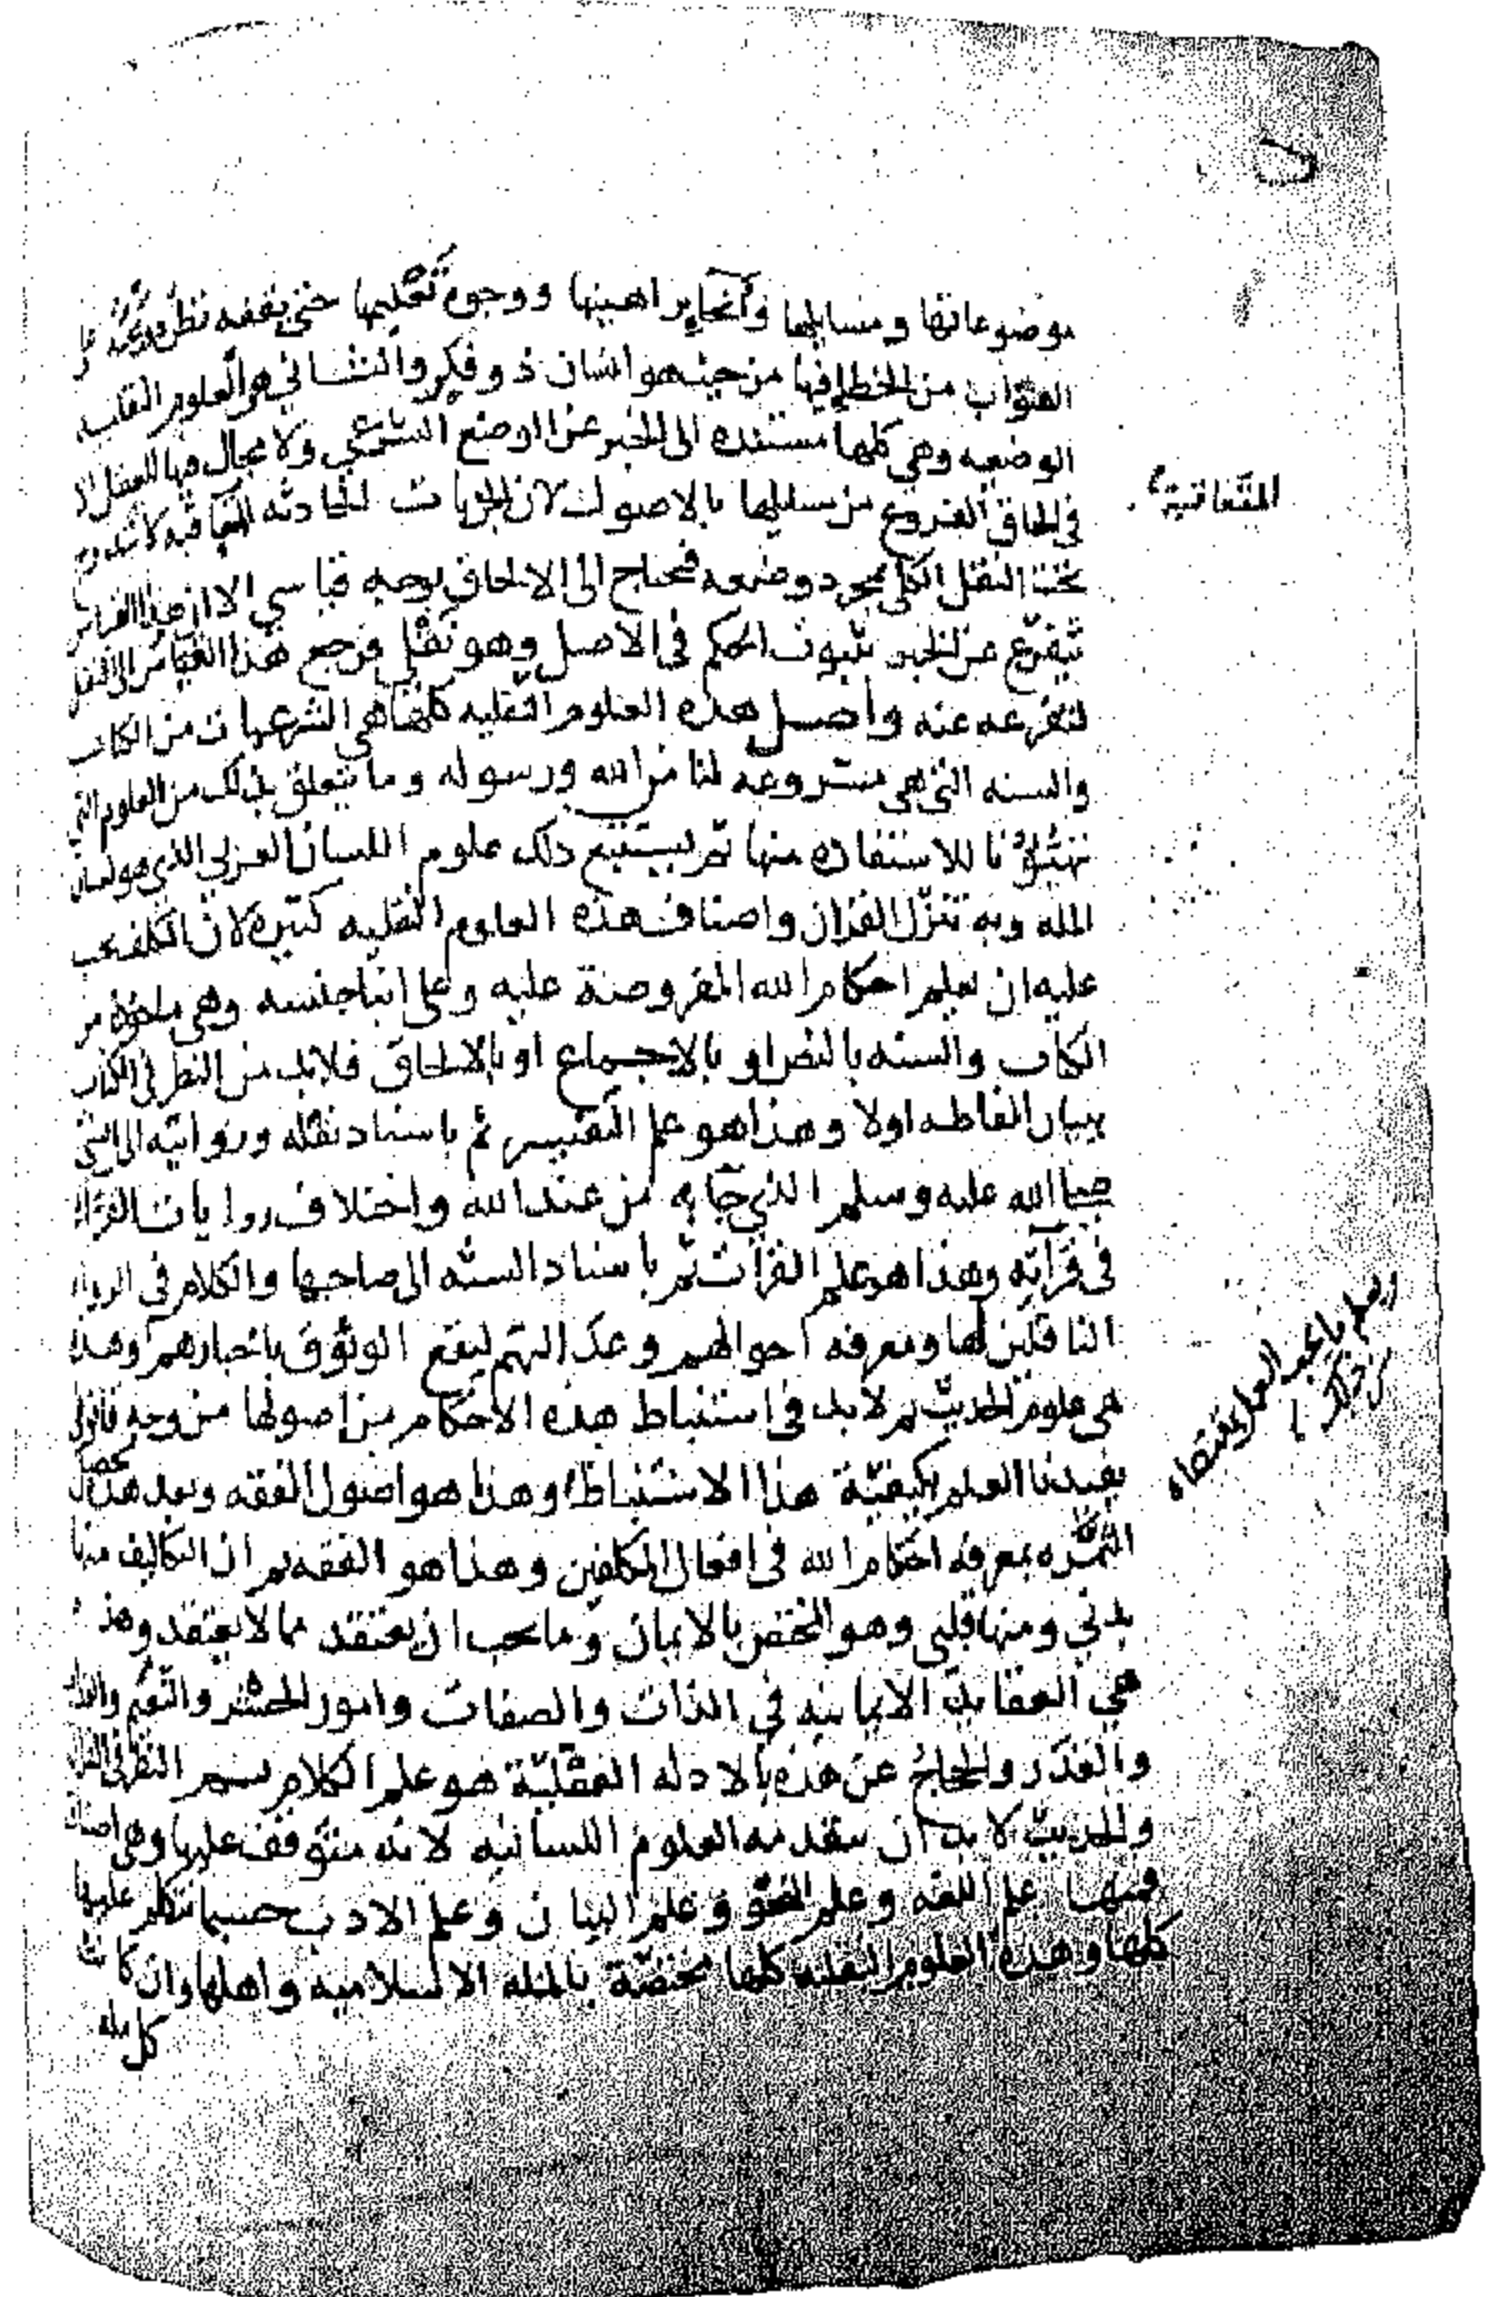 موضوعاتها ومسايلها وانحاء براهينها ووجوه تعليمها حتى يقفه نظره وبحثه على
الصواب من الخطاء فيها من حيث هو انسان ذو فكر والثاني هو العلوم النقليه
الوضعيه وهي كلها مستنده الى الخبر عن الوضع الشرعي ولا مجال فيها للعقل الا
في الحاق الفروع من مسايلها بالاصول لان الجزيات الحادثه المتعاقبه لا تندرج
المتعاقبة
تحت النقل الكلي بمجرد وضعه فتحتاج الى الالحاق بوجه قياسي الا ان هذا القياس
يتفرع عن الخبر بثبوت الحكم في الاصل وهو نقلي فرجع هذا القياس الى النقل
لتفرعه عنه واصل هذه العلوم النقليه كلها هي الشرعيات من الكتاب
والسنه التي هي مشروعه لنا من الله ورسوله وما يتعلق بذلك من العلوم التي
تهيؤنا للاستفاده منها ثم يستتبع ذلك علوم اللسان العربي الذي هو لسان
المله وبه تنزل القران واصناف هذه العلوم النقليه كثيره لان المكلف يجب
عليه ان يعلم احكام الله المفروضة عليه وعلى ابنا جنسه وهي ماخوذه من
الكتاب والسنه بالنص او بالاجماع او بالالحاق فلابد من النظر في الكتاب
ببيان الفاظه اولا وهذا هو علم التفسير ثم باسناد نقله وروايته الى النبي
صلى الله عليه وسلم الذي جا به من عند الله واختلاف روايات القراء
في قرآته وهذا هو علم القرآت ثم باسناد السنه الى صاحبها والكلام في الرواه
الناقلين لها ومعرفه احوالهم وعدالتهم ليقع الوثوق باخبارهم وهذه
هي علوم الحديث ثم لابد في استنباط هذه الاحكام من اصولها من وجه قانوني
يفيدنا العلم بكيفيّة هذا الاستنباط وهذا هو اصول الفقه وبعد هذا تحصل
الثمره بمعرفه احكام الله في افعال المكلفين وهذا هو الفقه ثم ان التكاليف منها
بدني ومنها قلبي وهو المختص بالايمان وما يجب ان يعتقد مما لا يعتقد وهذه
هي العقايد الايمانيه في الذات والصفات وامور الحشر والنعيم والعذاب
والقدر والحجاج عن هذه بالادله العقليّة هو علم الكلام ثم النظر في القران
والحديث لا بد ان يتقدمه العلوم اللسانيه لانه متوقف عليها وهي اصناف
فمنها علم اللغه وعلم النحو وعلم البيان وعلم الادب حسبما نتكلم عليها
كلها وهذه العلوم النقليه كلها مختصّة بالمله الاسلاميه واهلها وان كانت
كل مله